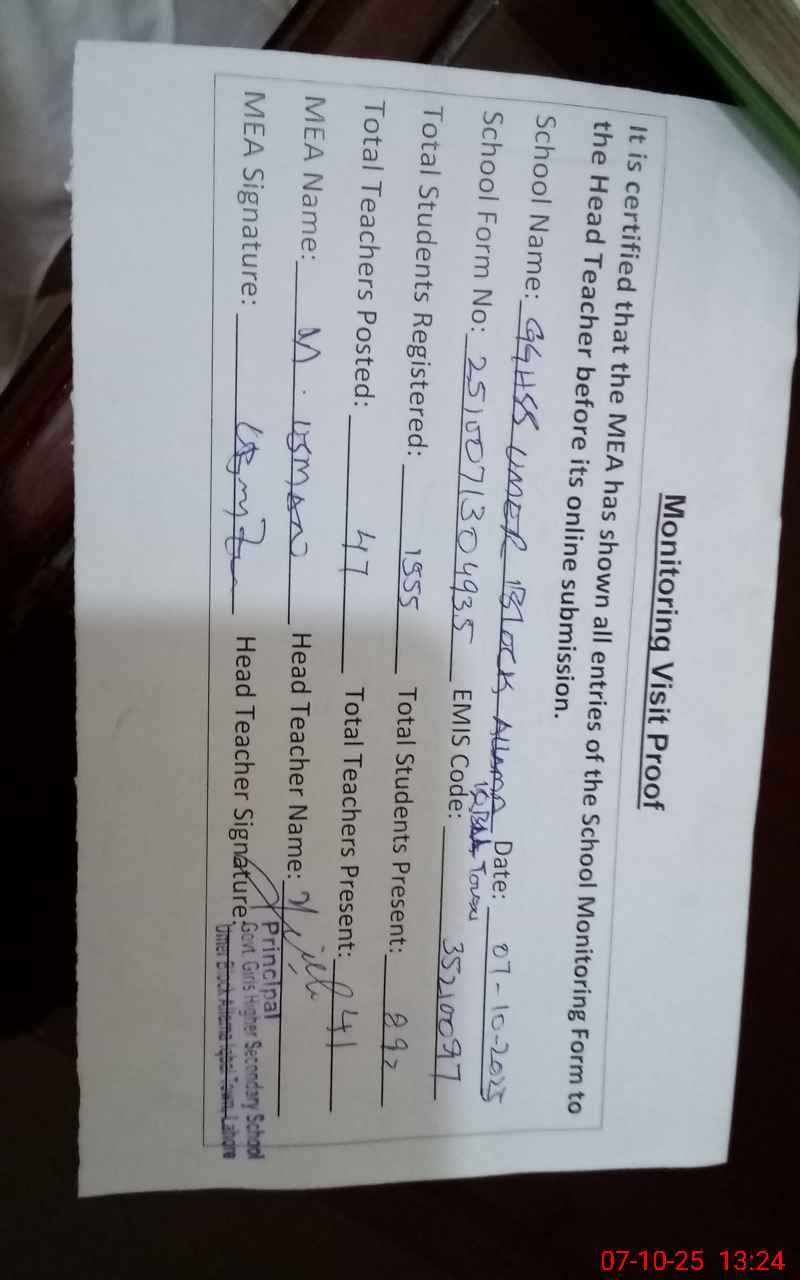 Monitoring Visit Proof
It is certified that the MEA has shown all entries of the School Monitoring Form to
the Head Teacher before its online submission.
School Name: GGHSS UMER BLOCK Allama Iqbal Town Date: 07-10-2025
School Form No: 251007130493.5 EMIS Code: 35210097
Total Students Registered: 1955 Total Students Present: 892
Total Teachers Posted: 47 Total Teachers Present: 41
MEA Name: M. USMAN Head Teacher Name:
MEA Signature: Head Teacher Signature:
Principal
Govt. Girls Higher Secondary School
Umer Block Allama Iqbal Town Lahore
07-10-25 13:24